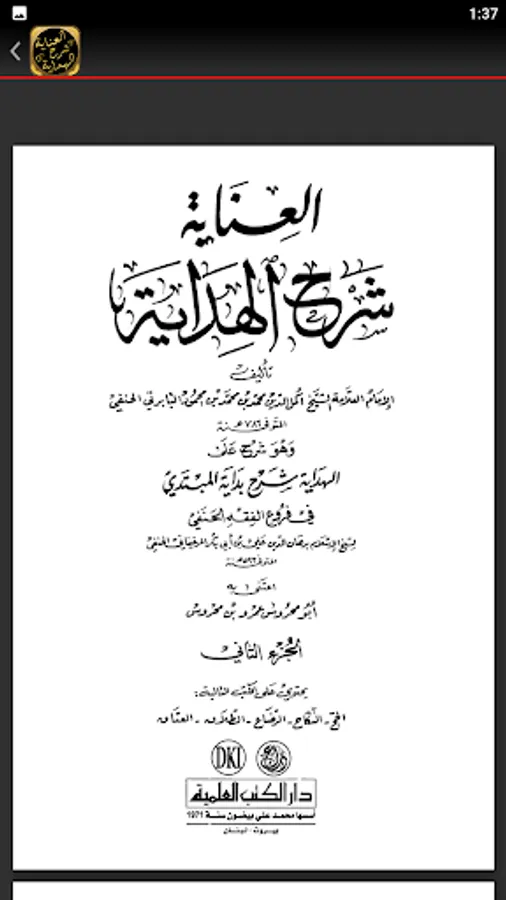 1:37
العناية
شرح
الهداية
العِنَاية
شَرْح الهِدَاية
تأليف
الإمام العلامة الشيخ أكمل الدين محمد بن محمد بن محمود البابرتي الحنفي
المتوفى ٧٨٦ هـ سنة
وهو شرح على
الهداية شرح بداية المبتدي
في فروع الفقه الحنفي
لشيخ الإسلام برهان الدين علي بن أبي بكر المرغيناني الحنفي
المتوفى ٥٩٣ هـ سنة
اعتنى به
أبو محروس عمرو بن محروس
الجزء الثاني
يحتوي على الكتب التالية:
الحج - النكاح - الرضاع - الطلاق - العتاق
DKI
دار الكتب العلمية
أسسها محمد علي بيضون سنة 1971
بيروت - لبنان